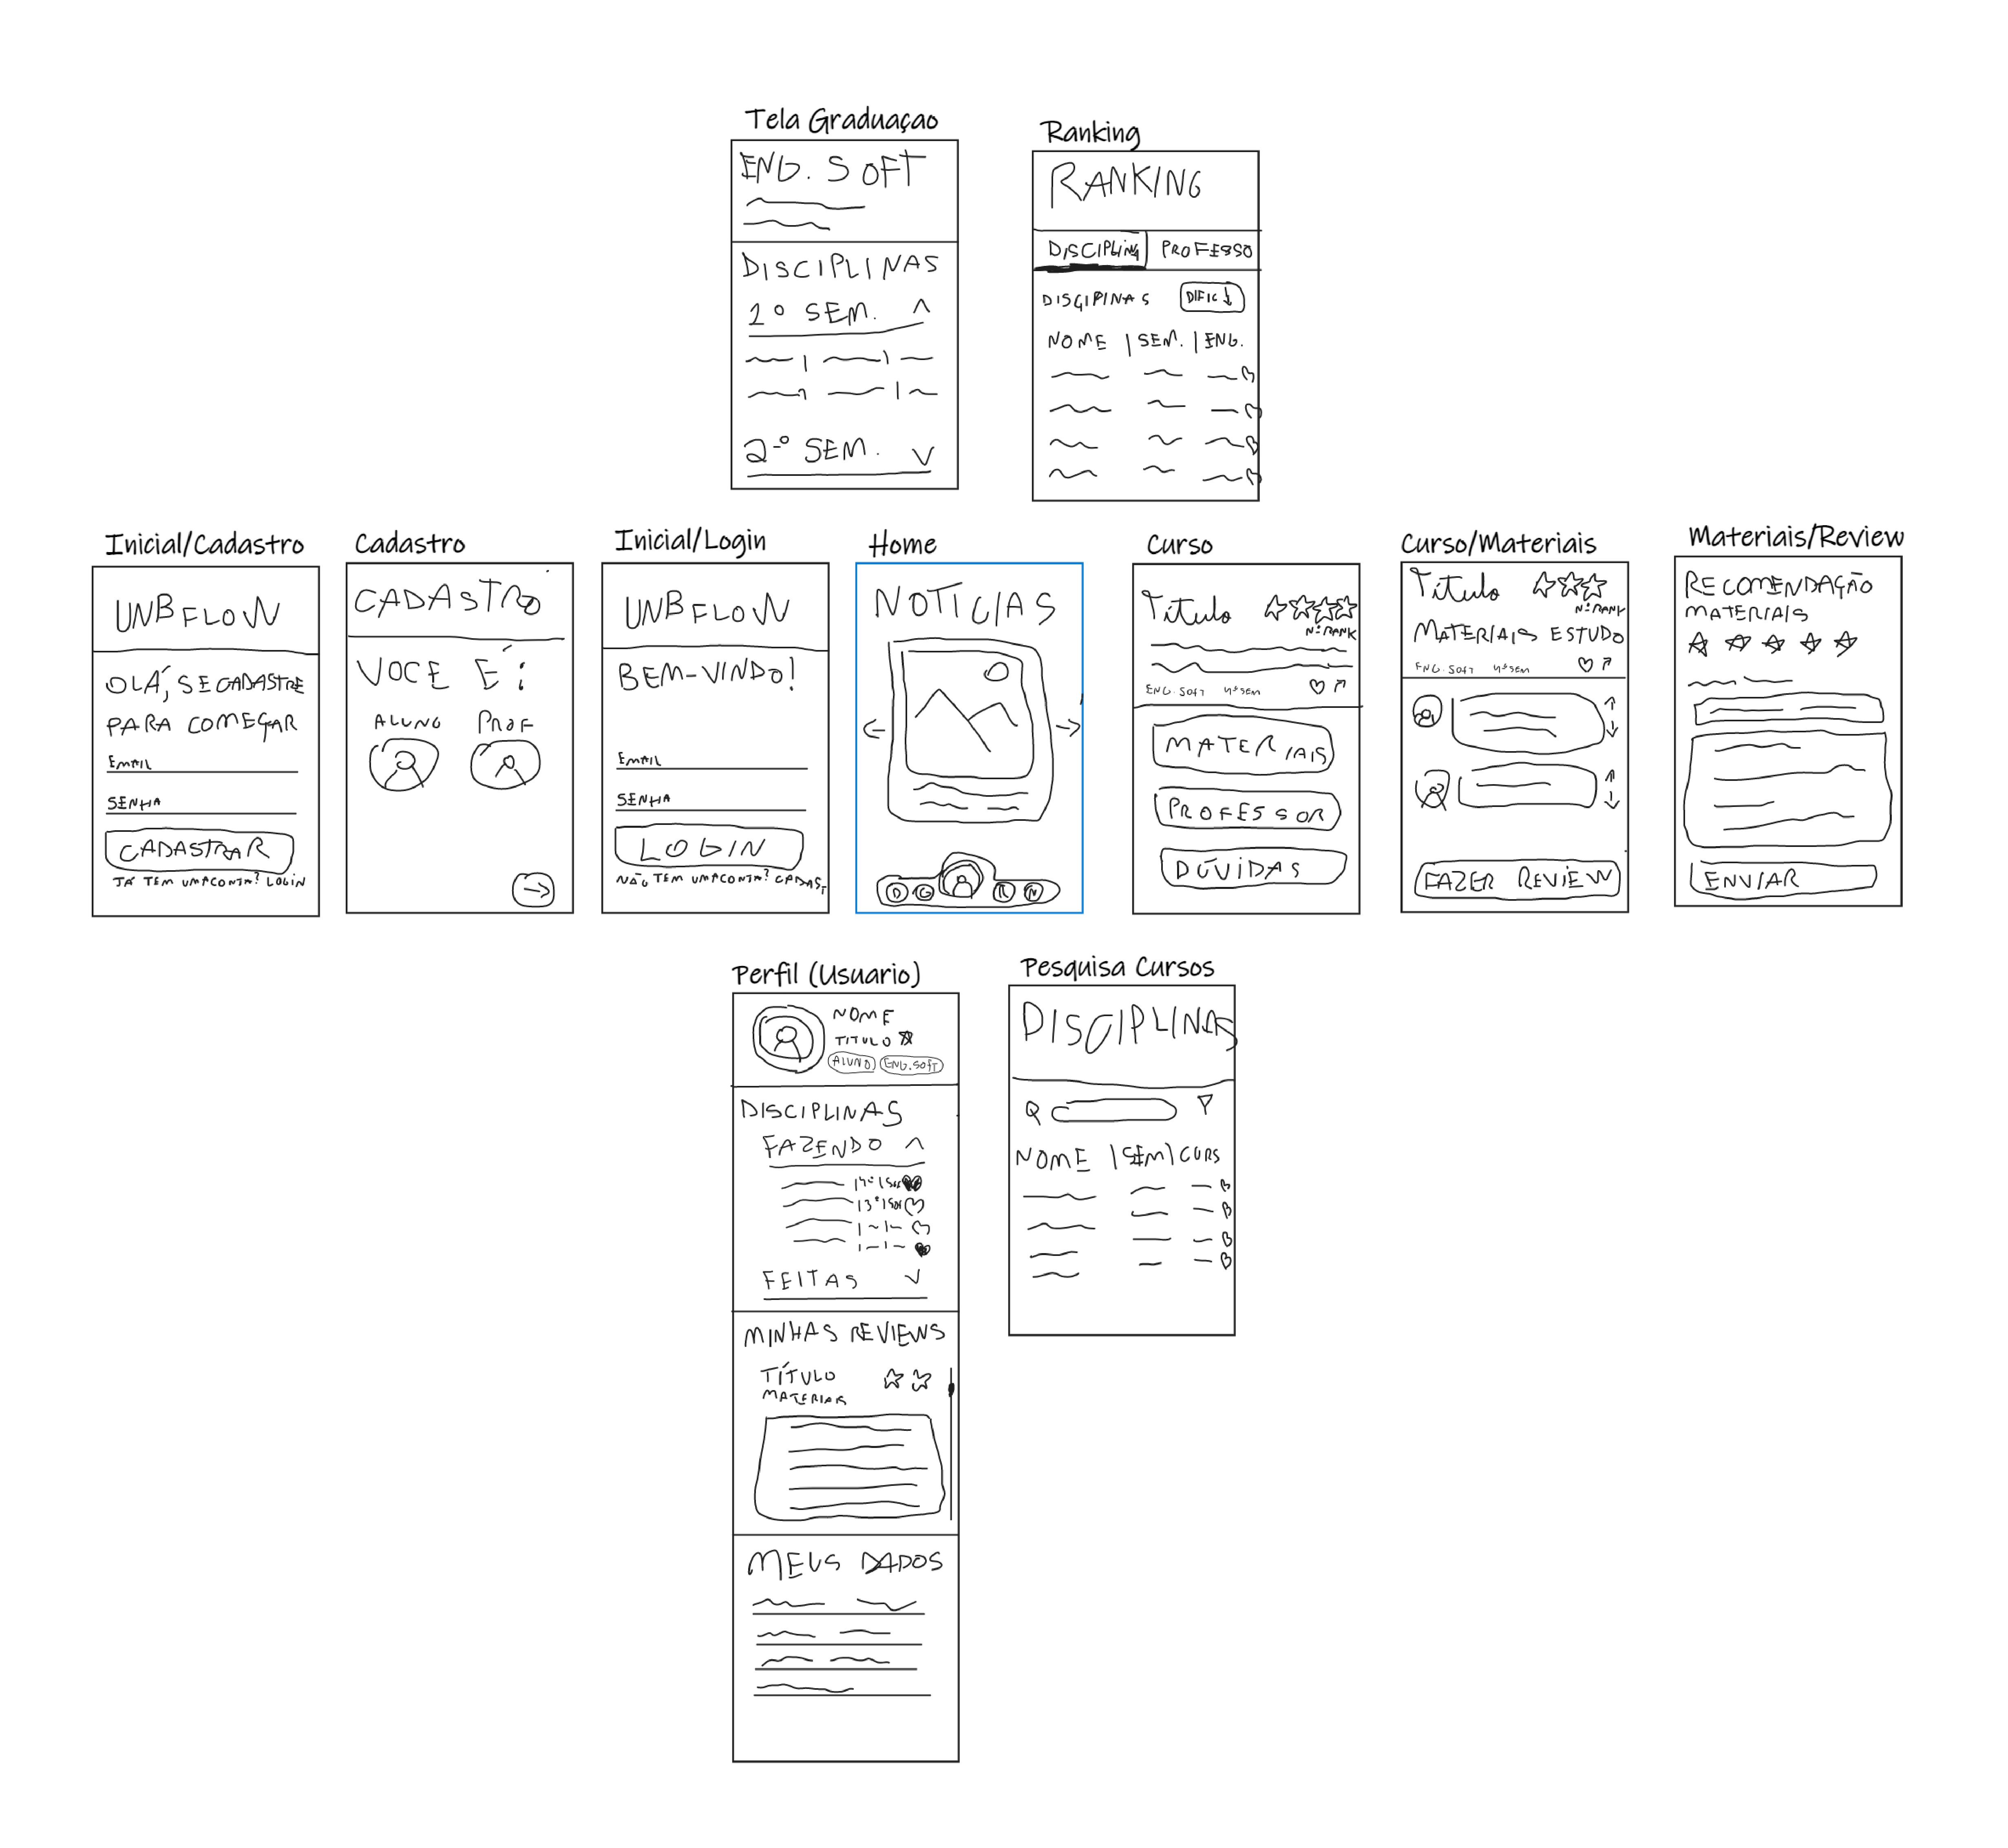 Tela Graduaçao
ENG. SOFT
DISCIPLINAS
1º SEM.
2º SEM.
Ranking
RANKING
DISCIPLINA PROFESSO
DISCIPINAS DIFIC
NOME | SEM. | ENG.
Inicial/Cadastro
UNB FLOW
OLÁ, SE CADASTRE
PARA COMEÇAR
EMAIL
SENHA
CADASTRAR
JÁ TEM UMA CONTA? LOGIN
Cadastro
CADASTRO
VOCE É:
ALUNO PROF
Inicial/Login
UNB FLOW
BEM-VINDO!
EMAIL
SENHA
LOGIN
NÃO TEM UMA CONTA? CADAST
Home
NOTICIAS
Curso
Título
Nº RANK
ENG. SOFT Nº SEM
MATERIAIS
PROFESSOR
DÚVIDAS
Curso/Materiais
Título
Nº RANK
MATERIAIS ESTUDO
ENG. SOFT Nº SEM
FAZER REVIEW
Materiais/Review
RECOMENDAÇÃO
MATERIAIS
ENVIAR
Perfil (Usuario)
NOME
TITULO
ALUNO ENG. SOFT
DISCIPLINAS
FAZENDO
FEITAS
MINHAS REVIEWS
TÍTULO
MATERIAIS
MEUS DADOS
Pesquisa Cursos
DISCIPLINAS
NOME | SEM | CURS